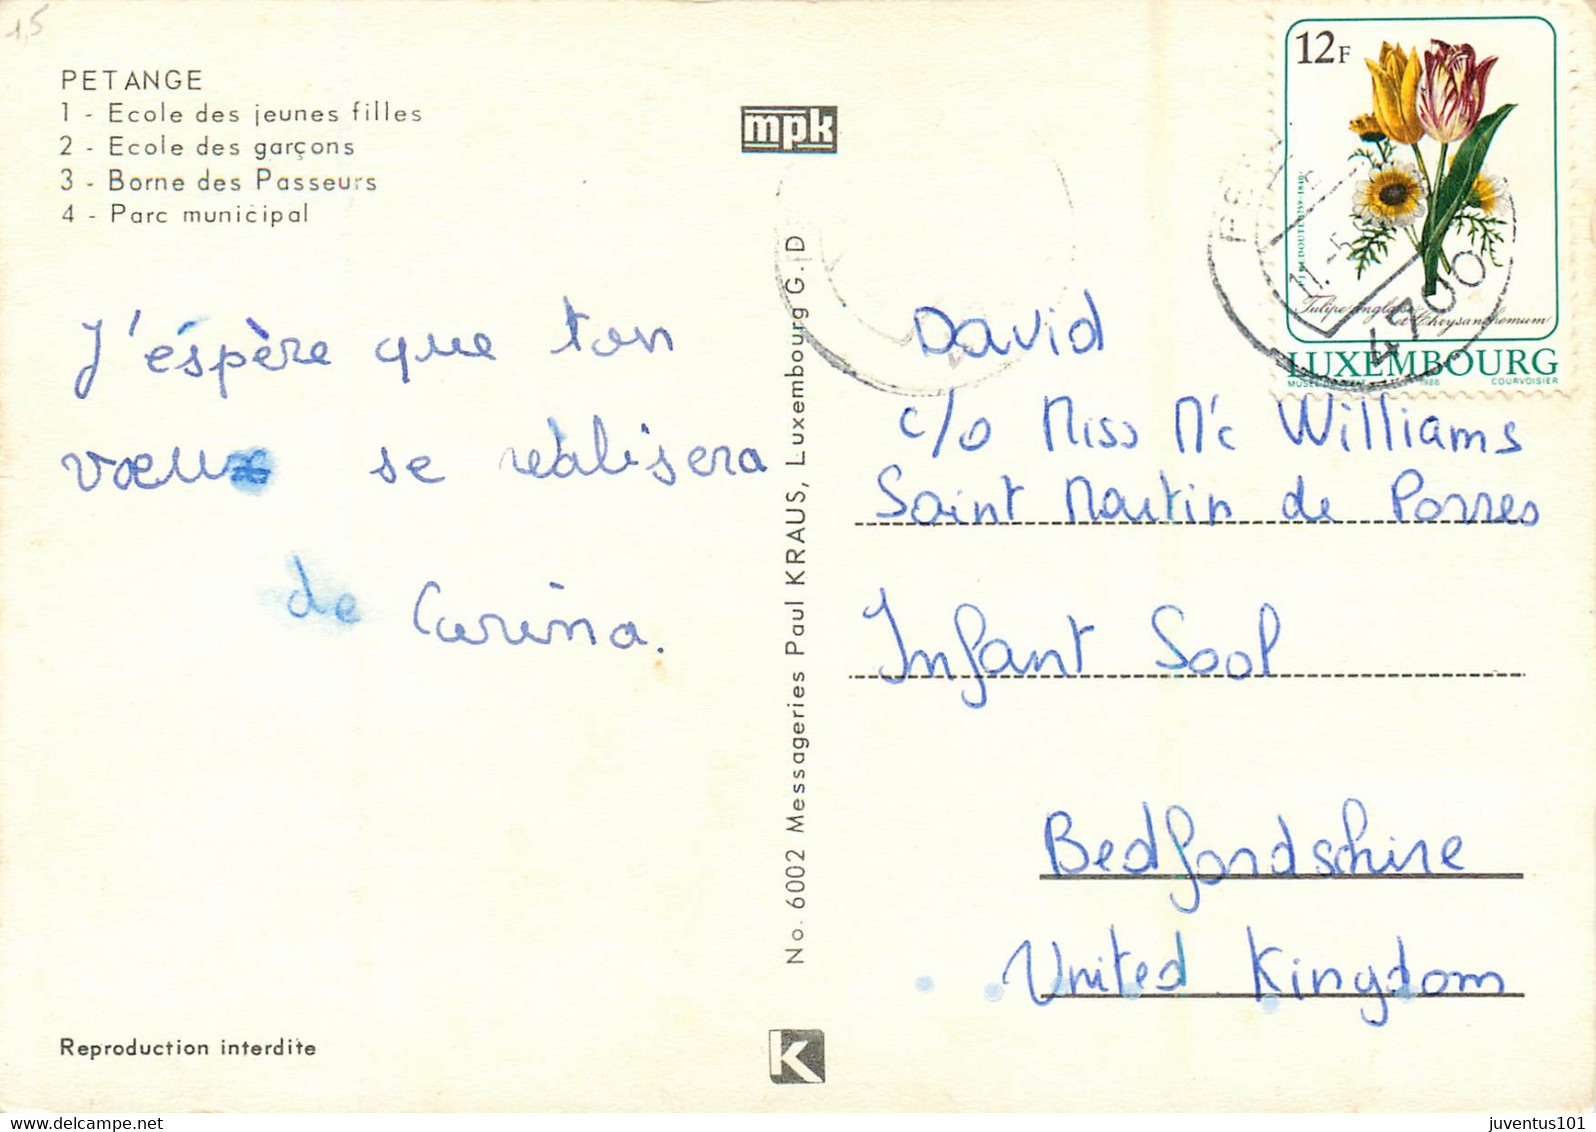 1,5
PETANGE
1 - Ecole des jeunes filles
2 - Ecole des garçons
3 - Borne des Passeurs
4 - Parc municipal
mpk
J'éspère que ton
vœux se réalisera
de Carina.
Reproduction interdite
No. 6002 Messageries Paul KRAUS, Luxembourg G.D
K
12F
Tulipe
et Chrysanthemum
LUXEMBOURG
1988 COURVOISIER
11.-5
4700
David
c/o Miss Mc Williams
Saint Martin de Porres
Infant Sool
Bedfordschire
United Kingdom
juventus101